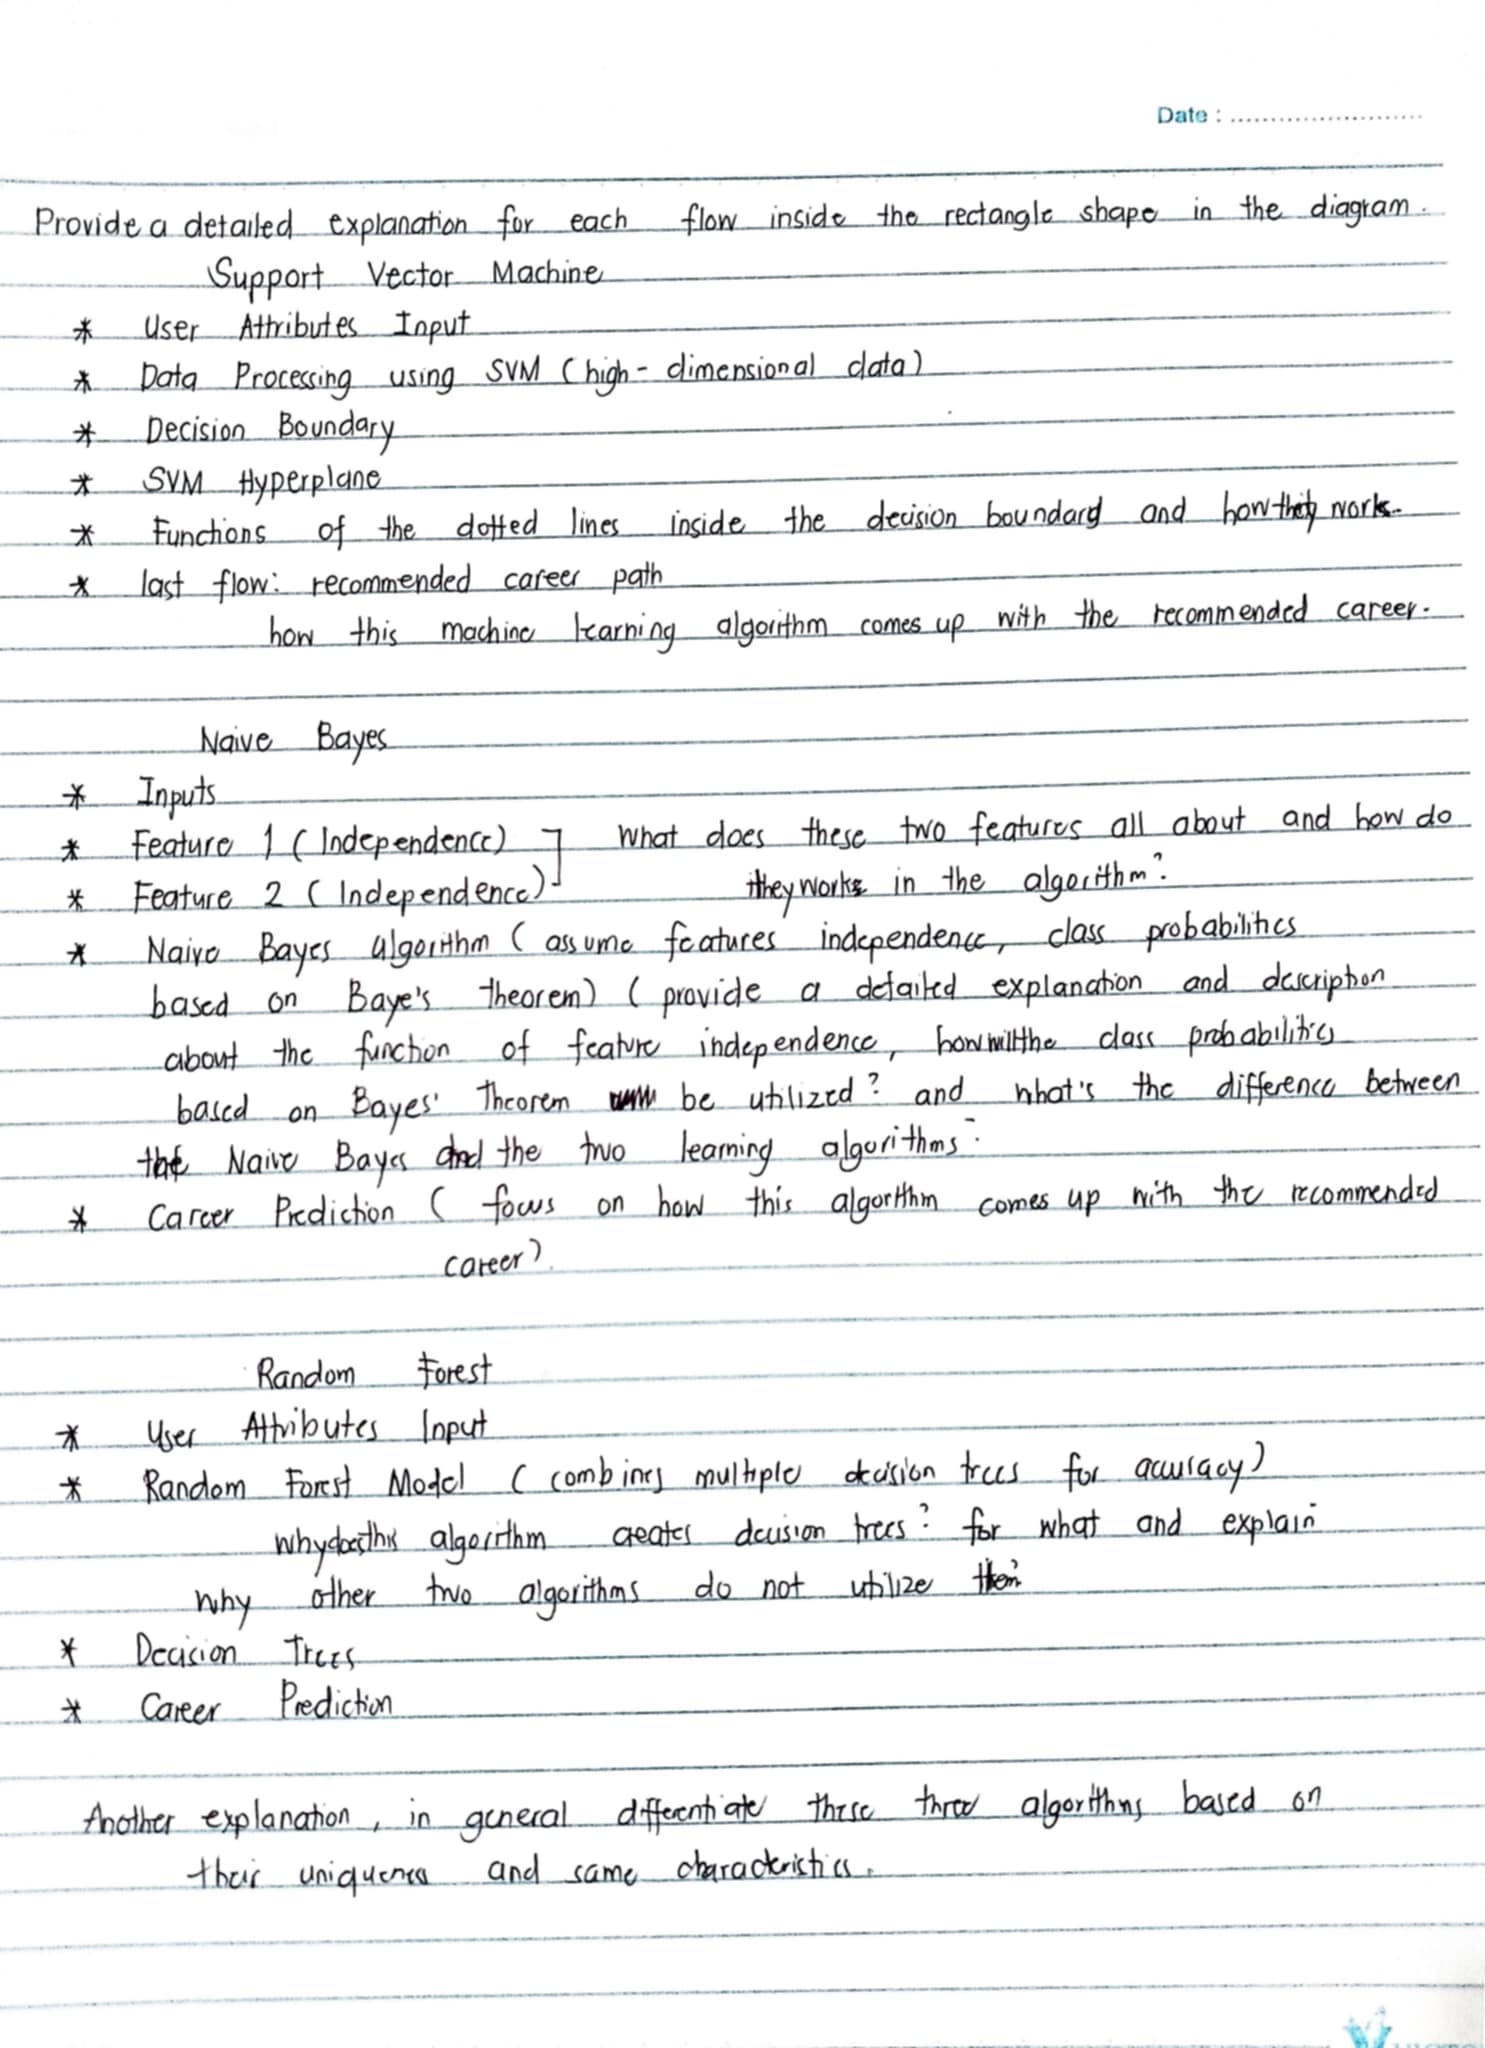 Date : ........................
Provide a detailed explanation for each flow inside the rectangle shape in the diagram.
Support Vector Machine
* User Attributes Input
* Data Processing using SVM (high-dimensional data)
* Decision Boundary
* SVM Hyperplane
* Functions of the dotted lines inside the decision boundard and how they works.
* last flow: recommended career path
how this machine learning algorithm comes up with the recommended career.
Naive Bayes
* Inputs
* Feature 1 (Independence) ] What does these two features all about and how do
* Feature 2 (Independence) they works in the algorithm?
* Naive Bayes algorithm (assume features independence, class probabilities
based on Baye's theorem) (provide a detailed explanation and description
about the function of feature independence, how will the class probabilities
based on Bayes' Theorem be utilized? and what's the difference between
the Naive Bayes and the two learning algorithms?
* Career Prediction (focus on how this algorithm comes up with the recommended
career).
Random Forest
* User Attributes Input
* Random Forest Model (combines multiple decision trees for accuracy)
why does this algorithm creates decision trees? for what and explain
why other two algorithms do not utilize them?
* Decision Trees
* Career Prediction
Another explanation, in general differentiate these three algorithms based on
their uniqueness and same characteristics.